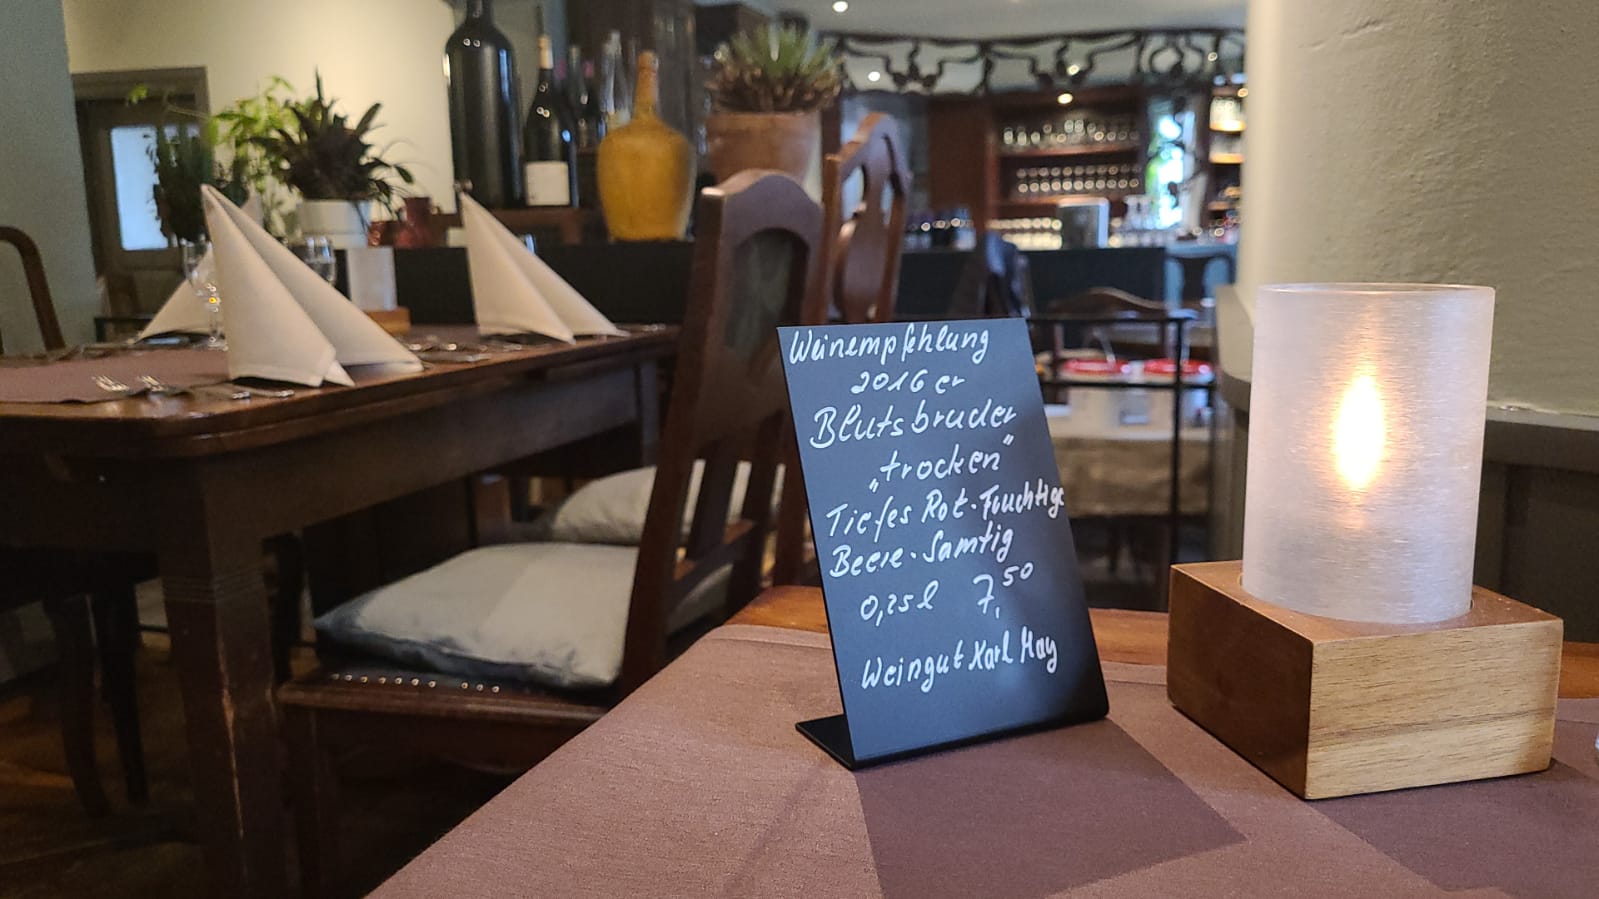 Weinempfehlung
2016 er
Blutsbruder
„trocken"
Tiefes Rot - Fruchtige
Beere - Samtig
0,25l 7,50
Weingut Karl May